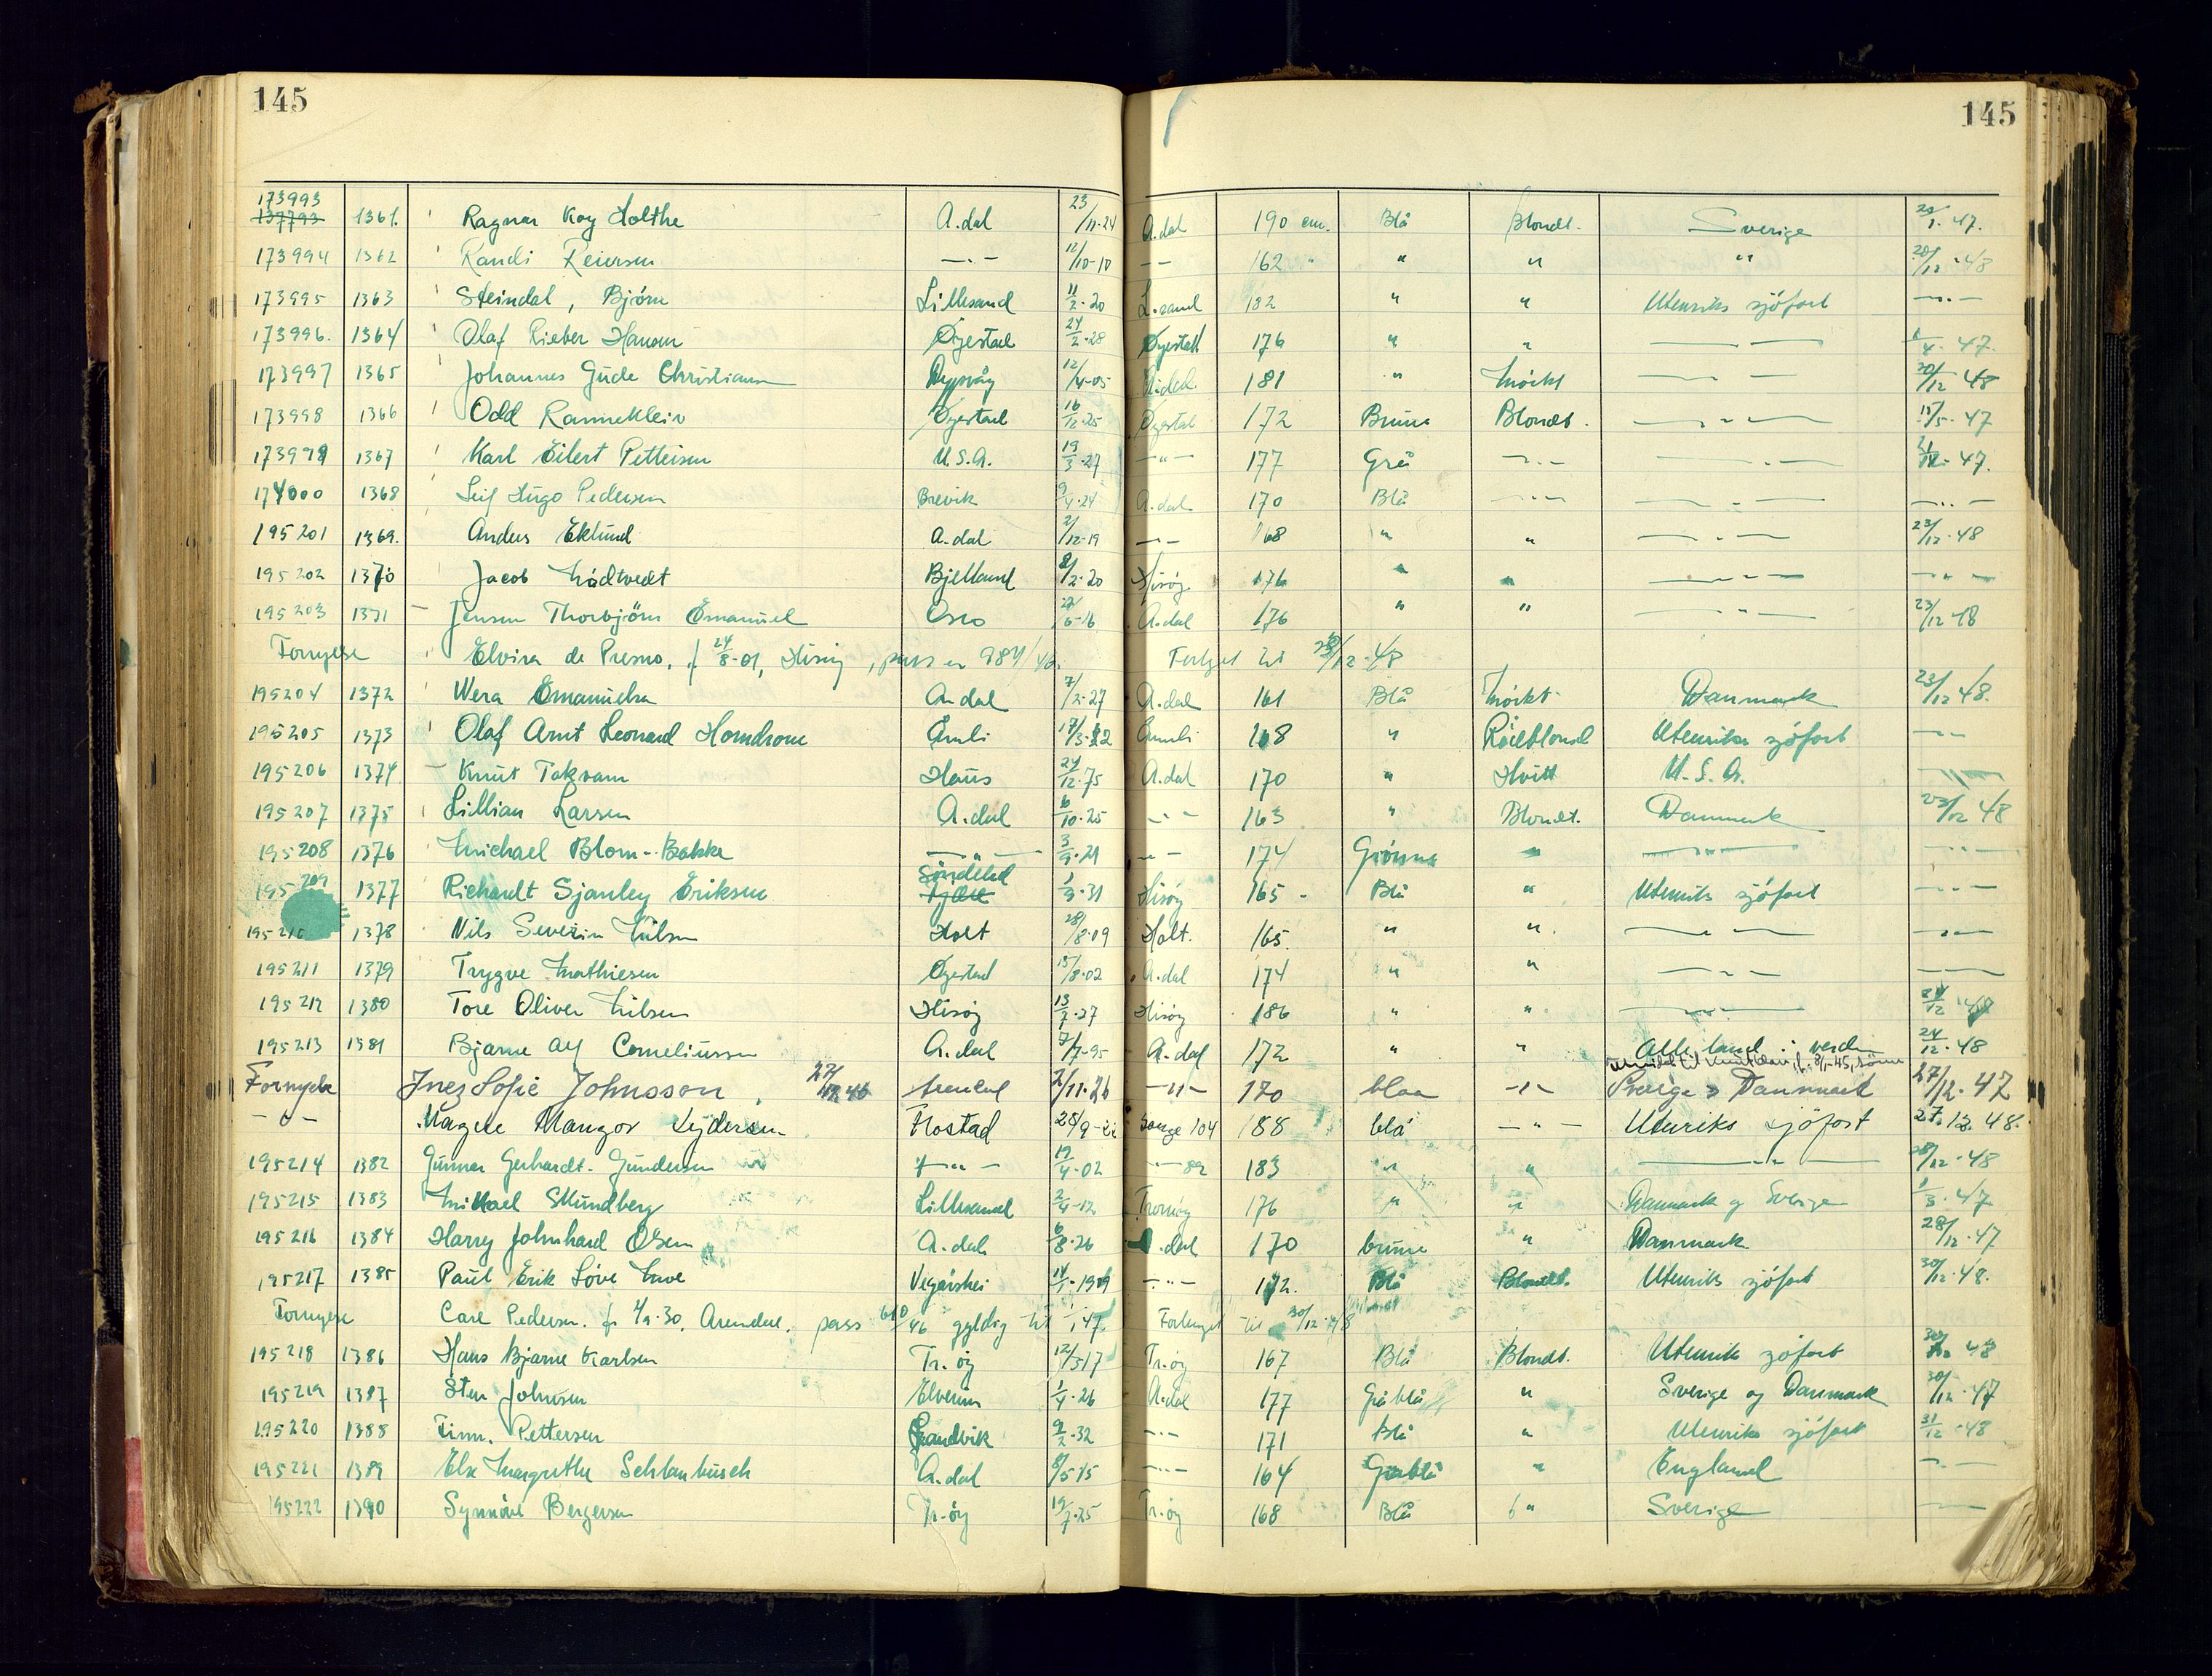 145 145
173993
137793 1361. Ragnar Kay Holthe A.dal 23/11-24 A.dal 190 cm. Blå Blondt. Sverige 20/1. 47.
173994 1362 Randi Reiersen —"— 12/10-10 —"— 162 " " " " 20/12-48
173995 1363 Steindal, Bjørn Lillesand 11/2-20 L.sand 182 " " Utenriks sjöfart —"—
173996. 1364 Olaf Rieber Hansen Øyestad 24/2-28 Øyestad 176 " " —"— /4-47.
173997 1365 Johannes Gude Christiansen Dypvåg 12/4-05 A.dal. 181 " Mörkt —"— 20/12 48
173998 1366 Odd Rannekleiv Øyestad 16/12-25 Øyestad 172 Brune Blondt. —"— 15/5-47
173999 1367 Karl Eilert Pettersen U.S.A. 19/3-27 —"— 177 Grå —"— —"— 47.
174000 1368 Leif Hugo Pedersen Brevik 9/4-24 A.dal 170 Blå —"— —"— —"—
195201 1369. Anders Eklund A.dal 2/12-19 —"— 168 " " —"— 23/12-48
195202 1370 Jacob Mödtvedt Bjelland 8/2-20 Hisöy. 176 " " —"— —"—
195203 1371 Jensen Thorbjörn Emanuel Oslo /6-16 A.dal 176 " " —"— 23/12 48
Fornyelse Elvira de Presno, f 24/8-01, Hisöy, pass nr 984/46. Forlenget til 23/12-48
195204 1372 Wera Emanuelsen A.dal 7/2-27 A.dal 161 Blå Mörkt Danmark 23/12 48.
195205 1373 Olaf Arnt Leonard Homdrom Åmli 17/3-22 Åmli 168 " Rödblond Utenriks sjöfart —"—
195206 1374. Knut Takvam Haus 24/12-75 A.dal 170 " Hvitt U.S.A. —"—
195207 1375 Lillian Larsen A.dal 6/10-25 —"— 163 " Blondt. Danmark 23/12 48
195208 1376 Michael Blom-Bakke —"— 3/9-21 —"— 174 Grönne " —"— —"—
195209 1377 Richardt Sjanley Eriksen Söndeled 1/9-31 Hisöy 165 - Blå " Utenriks sjöfart —"—
195210 1378 Nils Severin Nilsen Holt 28/8-09 Holt. 165. " " —"— —"—
195211 1379 Trygve Mathiesen Øyestad 15/8-02 A.dal 174 " " —"— —"—
195212 1380 Tore Oliver Nilsen Hisöy 13/7-27 Hisöy 186 " " —"— /12
195213 1381 Bjarne Alf Corneliussen A.dal 7/7-95 A.dal 172 " " Alle land i verden 24/12-48
Fornyelse Inez Sofie Johnsson, 27/12 46 Arendal 2/11-26 —"— 170 blaa —"— Sverige & Danmark 27/12-47
—"— Magne Mangor Lydersen Flostad 28/9-22 Songe 104 188 blå —"— Utenriks sjöfart 27.12. 48.
195214 1382 Gunnar Gerhardt Gundersen —"— 19/4-02 —"— 82 183 " " —"— 28/12-48
195215 1383 Mikael Skundberg Lillesand 2/4-12 Tromöy 176 " " Danmark og Sverige 1/3-47
195216 1384 Harry Johnhard Olsen A.dal 6/8-26 A.dal 170 brune " Danmark 28/12-47
195217 1385 Paul Erik Löve Vegårshei 14/1-1909 —"— 172. Blå Blondt. Utenriks sjöfart 30/12-48.
Fornyelse Carl Pedersen. f. -30, Arendal. pass 610/46 gyldig til /1 47. Forlenget til 30/12-48
195218 1386 Hans Bjarne Karlsen Tr.öy 12/3 17 Tr.öy 167 Blå Blondt. Utenriks sjöfart 30/12 48
195219 1387 Sten Johnsen Elverum 1/4-26 A.dal 177 Gråblå " Sverige og Danmark 30/12-47
195220 1388 Finn. Pettersen Sandvik 9/2-32 —"— 171 Blå " Utenriks sjöfart 31/12-48
195221 1389 Else Margrethe Schlanbusch A.dal 8/5 15 —"— 164 Gråblå " England —"—
195222 1390 Synnöve Bergersen Tr.öy 19/7-25 Tr.öy 168 Blå " Sverige —"—